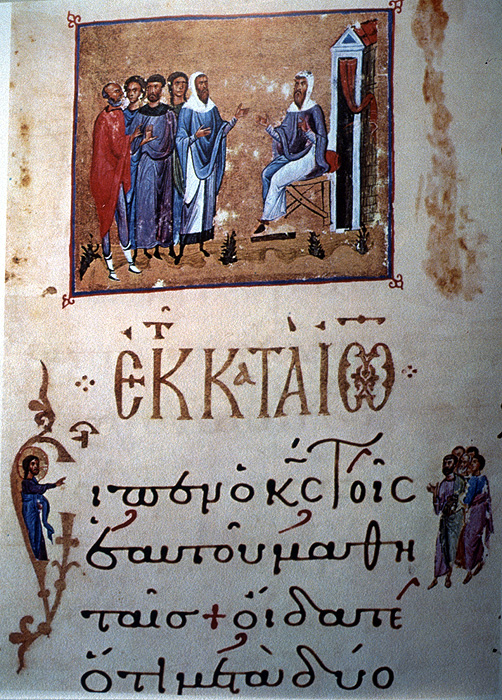 ἐκ τ κατὰ ιω
Ειπεν ὁ κ̄ς τοῖς
ἑαυτοῦ μαθη
ταῖς + οἴδατε
ὅτι μετὰ δύο